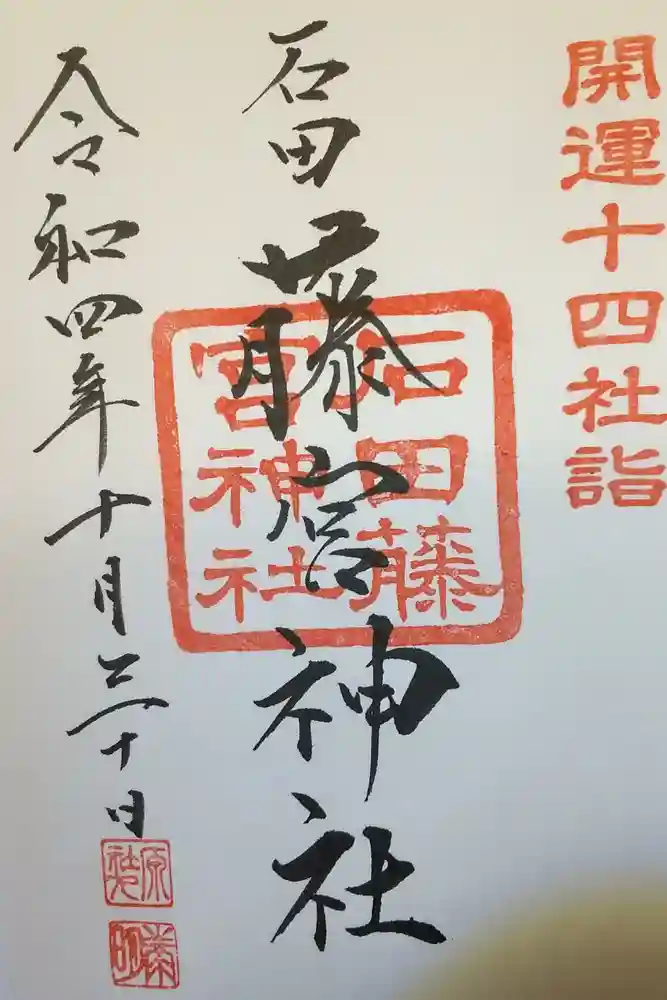 開運十四社詣
石田
藤宮神社
石田藤
宮神社
令和四年十月三十日